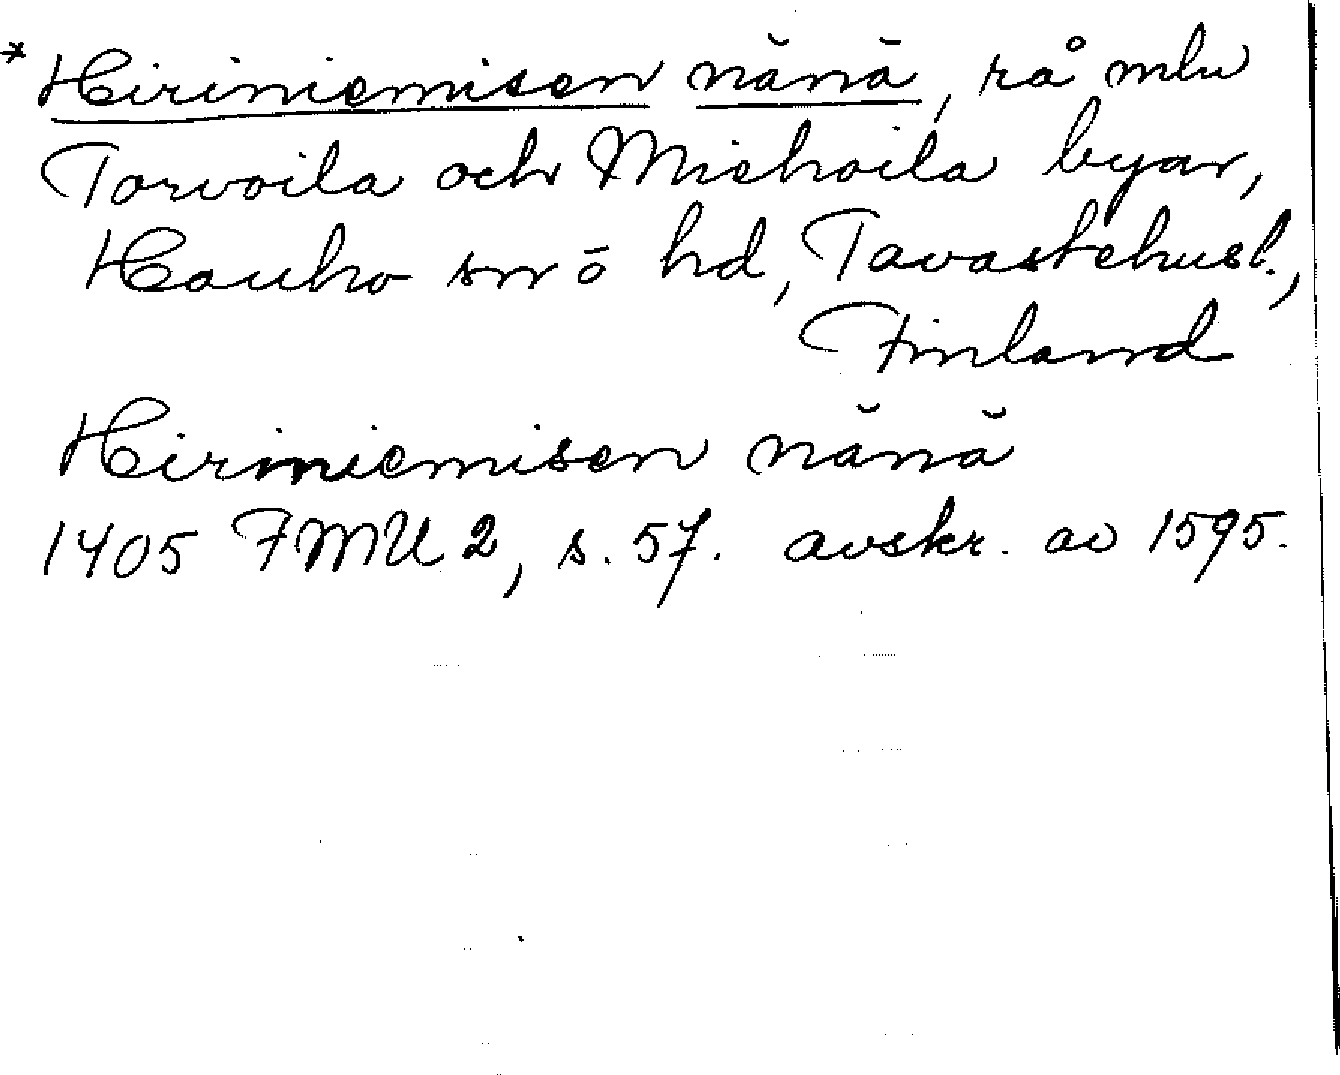 * Hiriniemisen nänä, rå mlu
Torvoila och Miehoila byar,
Hauho sn ō hd, Tavastehusl.,
Finland
Hiriniemisen nänä
1405 FMU 2, s. 57. avskr. av 1595.